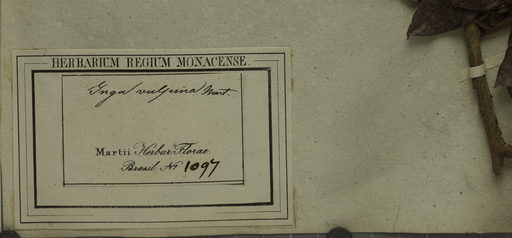 HERBARIUM REGIUM MONACENSE.
Inga vulpina Mart.
Martii Herbar. Florae
Brasil. No 1097